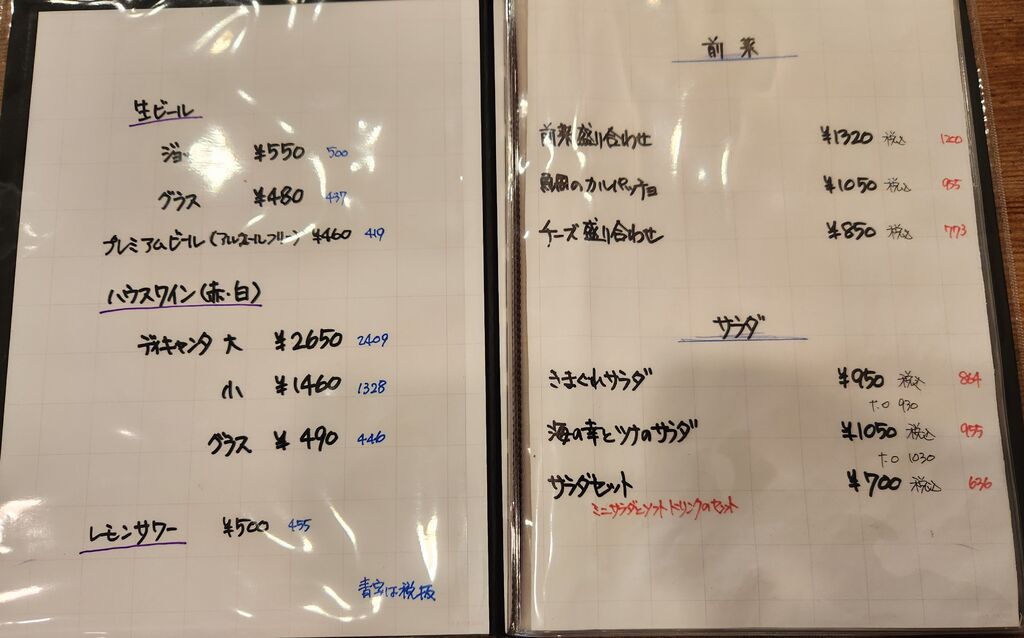 生ビール
ジョッ ¥550 500
グラス ¥480 437
プレミアムビール(アルコールフリー) ¥460 419
ハウスワイン(赤・白)
ディキャンタ 大 ¥2650 2409
小 ¥1460 1328
グラス ¥490 446
レモンサワー ¥500 455
青字は税抜
前菜
前菜盛り合わせ ¥1320 税込 1200
鮮魚のカルパッチョ ¥1050 税込 955
チーズ盛り合わせ ¥850 税込 773
サラダ
きまぐれサラダ ¥950 税込 864
T.O 930
海の幸とツナのサラダ ¥1050 税込 955
T.O 1030
サラダセット ¥700 税込 636
ミニサラダとソフトドリンクのセット